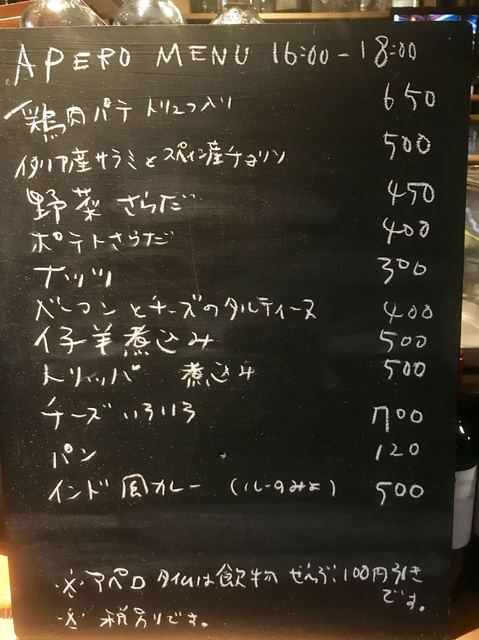 APERO MENU 16:00-18:00
鶏肉パテ トリュフ入り 650
イタリア産サラミとスペイン産チョリソ 500
野菜さらだ 450
ポテトさらだ 400
ナッツ 300
ベーコンとチーズのタルティーヌ 400
仔羊煮込み 500
トリッパ 煮込み 500
チーズいろいろ 700
パン 120
インド風カレー (ルーのみよ) 500
※アペロタイムは飲物ぜんぶ100円引き
です。
※ 税別りです。